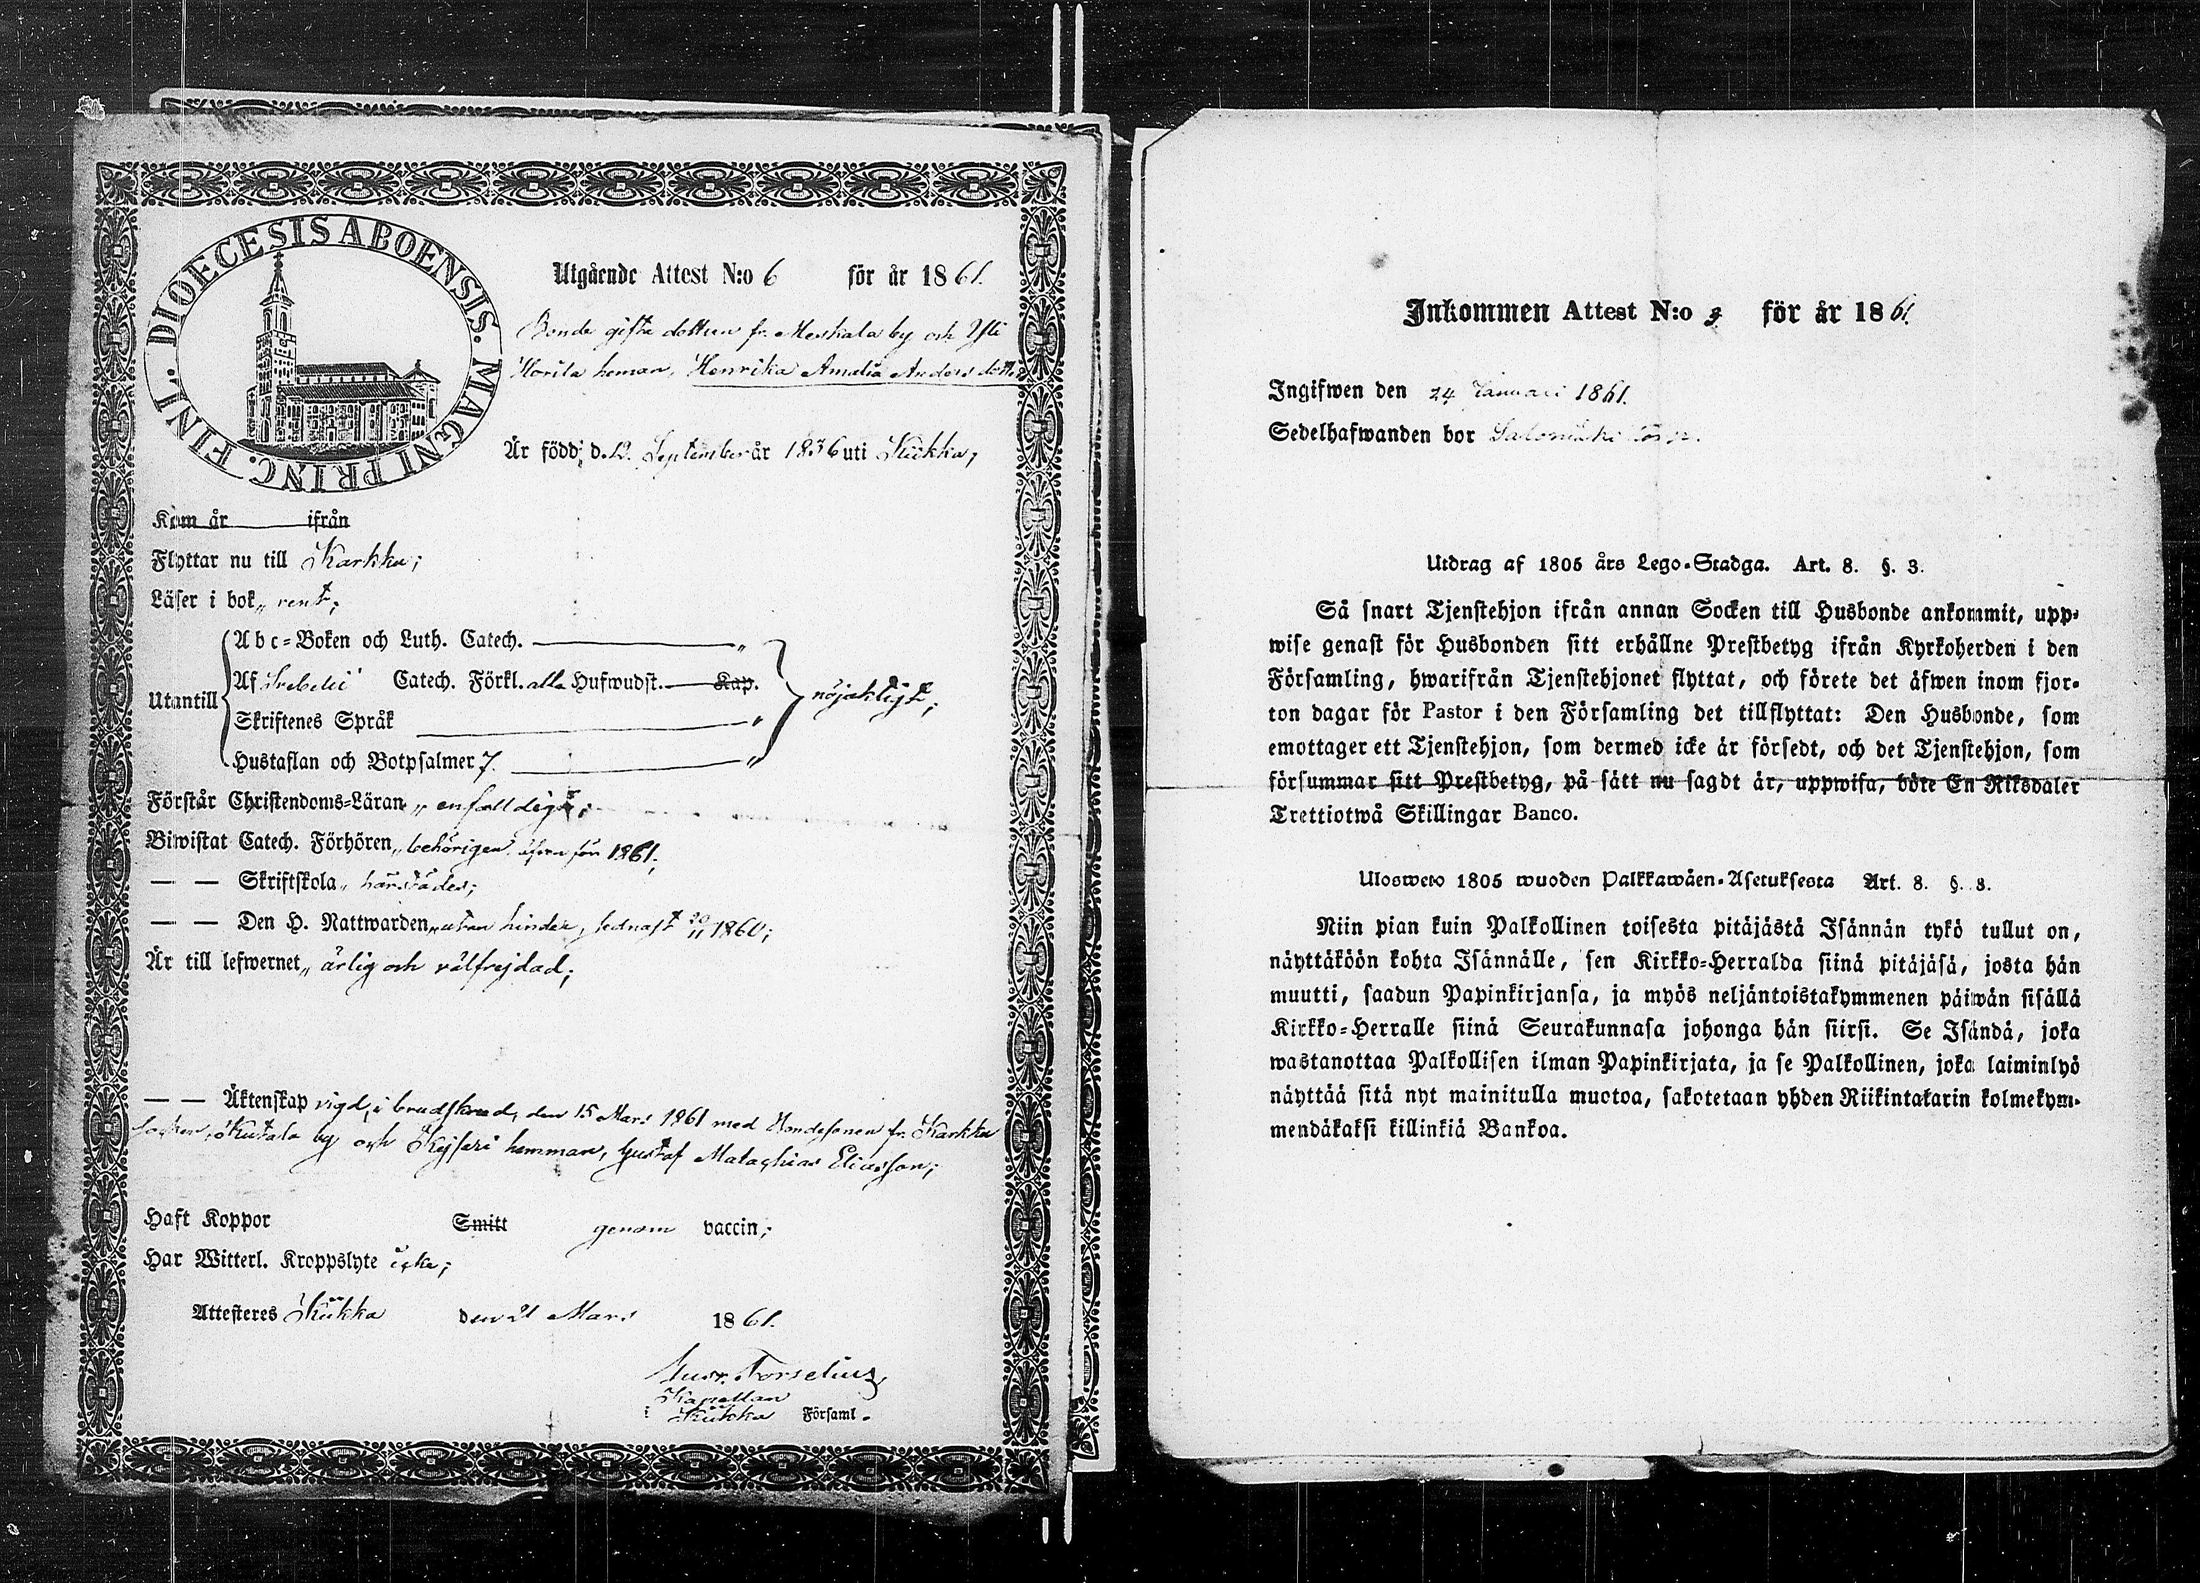 DIOECESIS ABOENSIS. MAGNI PRINC. FINL.
Utgående Attest N:o 6 för år 1861.
Bonde gifta dottren fr. Meskala by och Yli
Horila heman, Henrika Amalia Anders dotter
Är född d. 12 September år 1836 uti Kiikka,
Kom år ifrån
Flyttar nu till Karkku;
Läser i bok „ rent;
Utantill
Abc-Boken och Luth. Catech. „
Af Svebelii Catech. Förkl. alla Hufwudst. Kap.
Skriftenes Språk „
Hustaflan och Botpsalmer 7. „
nöjaktigt;
Förstår Christendoms-Läran „ enfalldigt;
Biwistat Catech. Förhören „ behörigen äfven för 1861;
— — Skriftskola „ härstädes;
— — Den H. Nattwarden „ utan hinder, sednast 20/11 1860;
Är till lefwernet „ ärlig och välfrejdad;
— — Äktenskap vigd, i brudskrud, den 15 Mars 1861 med Bondesonen fr. Karkku
socken, Kutala by och Keijseri hemman, Gustaf Matathias Eliasson;
Haft Koppor Smitt genom vaccin;
Har Witterl. Kroppslyte icke;
Attesteres Kiikka den 21 Mars 1861.
Gust. Forselius,
Kapellan
i Kiikka Församl.
Inkommen Attest N:o 3 för år 1861.
Ingifwen den 24 Januari 1861.
Sedelhafwanden bor Salomäki
Utdrag af 1805 års Lego-Stadga. Art. 8. §. 3.
Så snart Tjenstehjon ifrån annan Socken till Husbonde ankommit, upp-
wise genast för Husbonden sitt erhållne Prestbetyg ifrån Kyrkoherden i den
Församling, hwarifrån Tjenstehjonet flyttat, och förete det äfwen inom fjor-
ton dagar för Pastor i den Församling det tillflyttat: Den Husbonde, som
emottager ett Tjenstehjon, som dermed icke är försedt, och det Tjenstehjon, som
försummar sitt Prestbetyg, på sätt nu sagdt är, uppwisa, böte En Riksdaler
Trettiotwå Skillingar Banco.
Ulosweto 1805 wuoden Palkkawäen-Asetuksesta Art. 8. §. 3.
Niin pian kuin Palkollinen toisesta pitäjästä Isännän tykö tullut on,
näyttäköön kohta Isännälle, sen Kirkko-Herralda siinä pitäjäsä, josta hän
muutti, saadun Papinkirjansa, ja myös neljäntoistakymmenen päiwän sisällä
Kirkko-Herralle siinä Seurakunnasa johonga hän siirsi. Se Isändä, joka
wastanottaa Palkollisen ilman Papinkirjata, ja se Palkollinen, joka laiminlyö
näyttää sitä nyt mainitulla muotoa, sakotetaan yhden Riikintalarin kolmekym-
mendäkaksi killinkiä Bankoa.